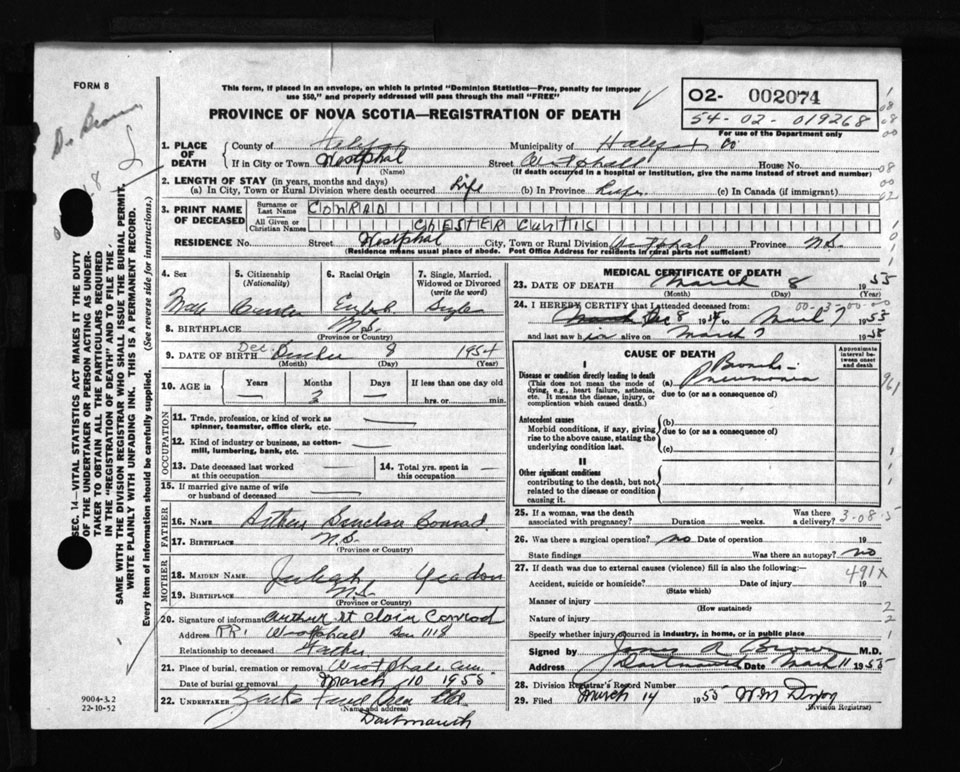 FORM 8
This form, if placed in an envelope, on which is printed "Dominion Statistics—Free, penalty for improper
use $50," and properly addressed will pass through the mail "FREE"
PROVINCE OF NOVA SCOTIA—REGISTRATION OF DEATH
O2- 002074
54-02-019268
For use of the Department only
Dr Brown
SEC. 14—VITAL STATISTICS ACT MAKES IT THE DUTY
OF THE UNDERTAKER OR PERSON ACTING AS UNDER-
TAKER TO OBTAIN ALL THE PARTICULARS REQUIRED
IN THE "REGISTRATION OF DEATH" AND TO FILE THE
SAME WITH THE DIVISION REGISTRAR WHO SHALL ISSUE THE BURIAL PERMIT.
WRITE PLAINLY WITH UNFADING INK. THIS IS A PERMANENT RECORD.
Every item of information should be carefully supplied. (See reverse side for instructions.)
1. PLACE OF DEATH
County of Halifax Municipality of Halifax Co
If in City or Town Westphal (Name) Street Westphall House No.
(If death occurred in a hospital or institution, give the name instead of street and number)
2. LENGTH OF STAY (in years, months and days)
(a) In City, Town or Rural Division where death occurred Life (b) In Province Life (c) In Canada (if immigrant)
3. PRINT NAME OF DECEASED
Surname or Last Name CONRAD
All Given or Christian Names CHESTER CURTIS
RESIDENCE No. Street Westphal City, Town or Rural Division Westphal Province N.S.
(Residence means usual place of abode. Post Office Address for residents in rural parts not sufficient)
4. Sex Male
5. Citizenship (Nationality)
6. Racial Origin English
7. Single, Married, Widowed or Divorced (write the word) Single
8. BIRTHPLACE N.S. (Province or Country)
9. DATE OF BIRTH Dec. 8 1954
(Month) (Day) (Year)
10. AGE in Years — Months 3 Days — If less than one day old hrs. or min.
OCCUPATION
11. Trade, profession, or kind of work as spinner, teamster, office clerk, etc. —
12. Kind of industry or business, as cotton-mill, lumbering, bank, etc. —
13. Date deceased last worked at this occupation —
14. Total yrs. spent in this occupation —
15. If married give name of wife or husband of deceased —
FATHER
16. NAME Arthur Sinclair Conrad
17. BIRTHPLACE N.S. (Province or Country)
MOTHER
18. MAIDEN NAME Yeadon
19. BIRTHPLACE N.S. (Province or Country)
20. Signature of informant Arthur St Clair Conrad
Address RR1 Westphall Box 1118
Relationship to deceased Father
21. Place of burial, cremation or removal Westphal Cem.
Date of burial or removal March 10 1955
22. UNDERTAKER Ltd.
(Name and address)
Dartmouth
9004-3.2
22-10-52
MEDICAL CERTIFICATE OF DEATH
23. DATE OF DEATH March 8 1955
(Month) (Day) (Year)
24. I HEREBY CERTIFY that I attended deceased from: 00-3-00-00
Dec 8 1954 to March 7 1955
and last saw him alive on March 7 1955
CAUSE OF DEATH
Approximate interval between onset and death
I
Disease or condition directly leading to death (a) Broncho-pneumonia
(This does not mean the mode of dying, e.g., heart failure, asthenia, etc. It means the disease, injury, or complication which caused death.)
due to (or as a consequence of)
961
Antecedent causes
Morbid conditions, if any, giving rise to the above cause, stating the underlying condition last.
(b)
due to (or as a consequence of)
(c)
II
Other significant conditions
contributing to the death, but not related to the disease or condition causing it.
25. If a woman, was the death associated with pregnancy? Duration weeks. Was there a delivery?
3-08-5
26. Was there a surgical operation? no Date of operation 19
State findings Was there an autopsy? no
27. If death was due to external causes (violence) fill in also the following:—
491X
Accident, suicide or homicide? (State which) Date of injury 19
Manner of injury (How sustained) 2
Nature of injury 2
Specify whether injury occurred in industry, in home, or in public place 1
Signed by James A Brown M.D.
Address Dartmouth Date March 11 1955
28. Division Registrar's Record Number
29. Filed March 14 1955
Division Registrar